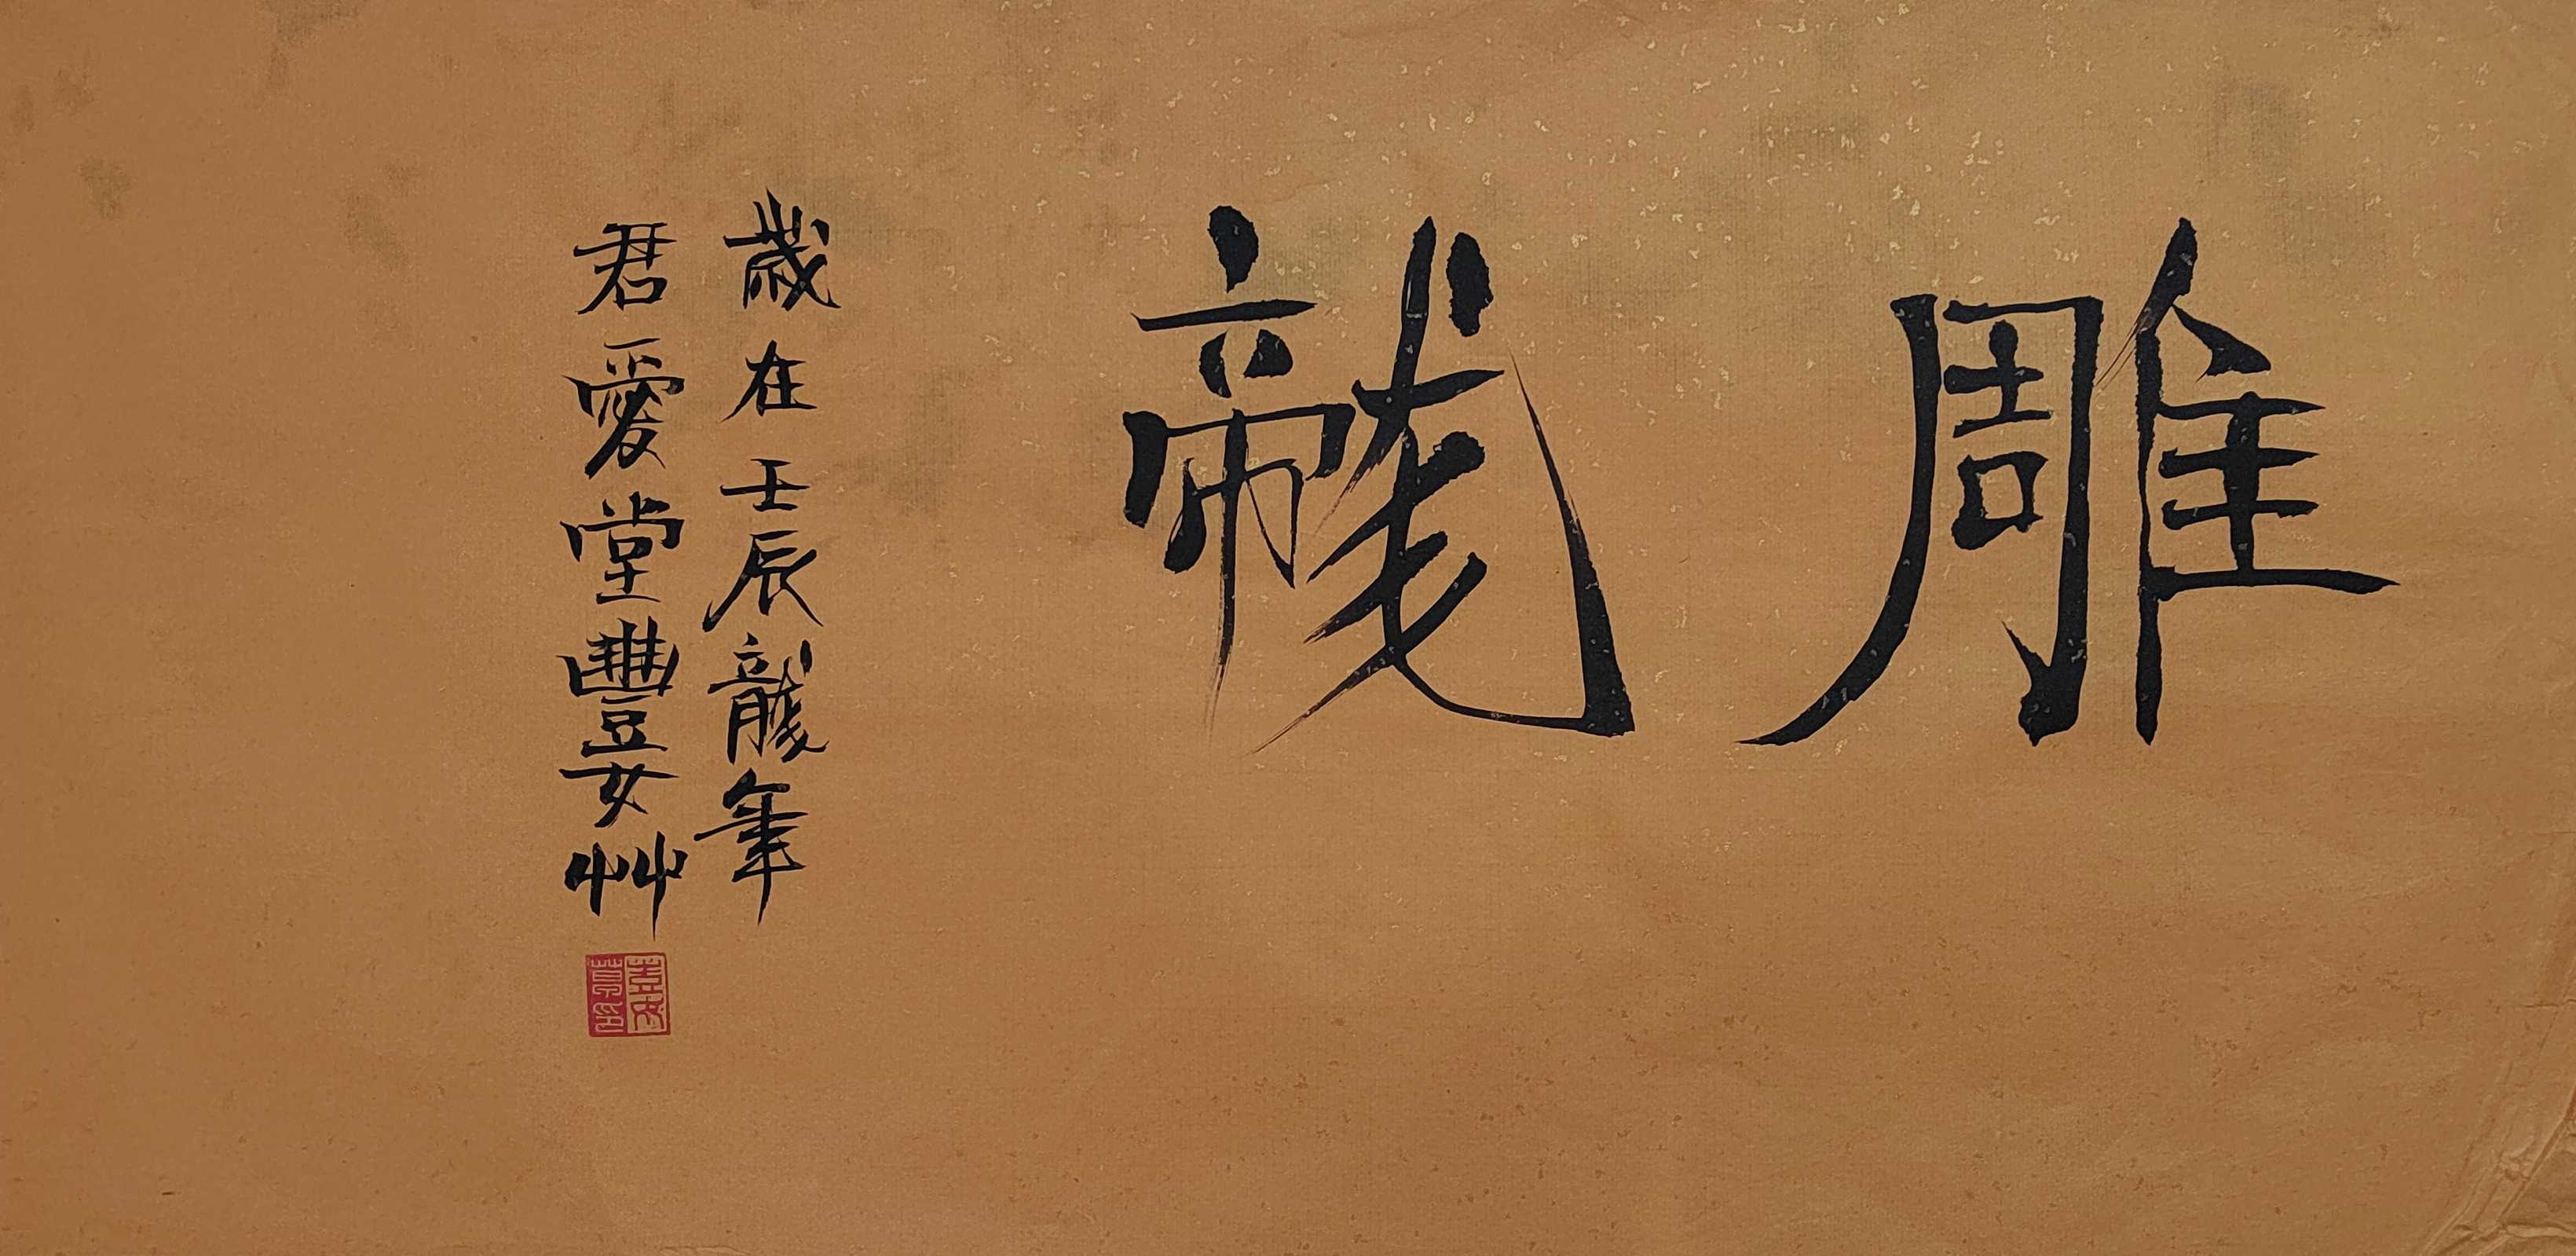 雕龍
歲在壬辰龍年
君愛堂豐女艸